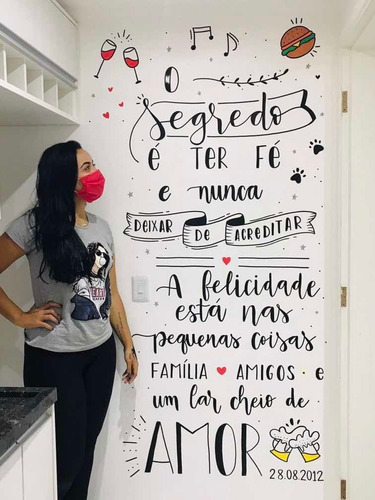 O
Segredo
é TER FÉ
e nunca
DEIXAR DE ACREDITAR
A felicidade
está nas
pequenas coisas
FAMÍLIA AMIGOS e
um lar cheio de
AMOR
28.08.2012